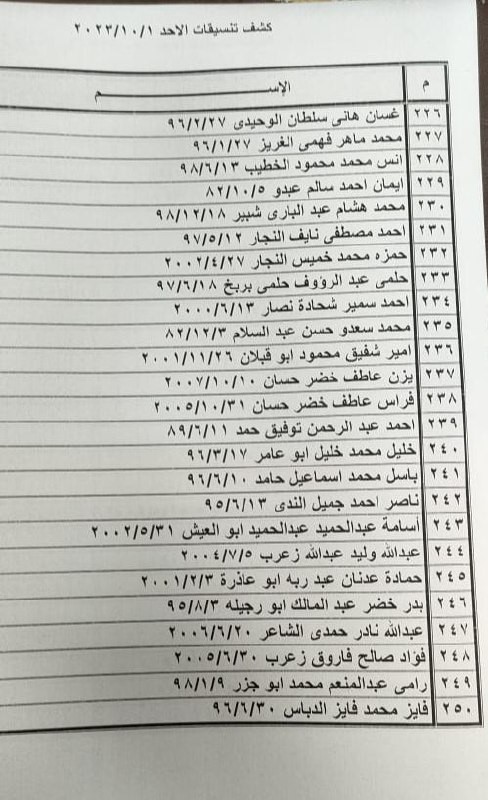 كشف تنسيقات الاحد ٢٠٢٣/١٠/١
م الإســـم
٢٢٦ غسان هانى سلطان الوحيدى ٩٦/٢/٢٧
٢٢٧ محمد ماهر فهمى الغريز ٩٦/١/٢٧
٢٢٨ انس محمد محمود الخطيب ٩٨/٦/١٣
٢٢٩ ايمان احمد سالم عبدو ٨٢/١٠/٥
٢٣٠ محمد هشام عبد البارى شبير ٩٨/١٢/١٨
٢٣١ احمد مصطفى نايف النجار ٩٧/٥/١٢
٢٣٢ حمزه محمد خميس النجار ٢٠٠٢/٤/٢٧
٢٣٣ حلمى عبد الرؤوف حلمى بربخ ٩٧/٦/١٨
٢٣٤ احمد سمير شحادة نصار ٢٠٠٠/٦/١٣
٢٣٥ محمد سعدو حسن عبد السلام ٨٢/١٢/٣
٢٣٦ امير شفيق محمود ابو قبلان ٢٠٠١/١١/٢٦
٢٣٧ يزن عاطف خضر حسان ٢٠٠٧/١٠/١٠
٢٣٨ فراس عاطف خضر حسان ٢٠٠٥/١٠/٣١
٢٣٩ احمد عبد الرحمن توفيق حمد ٨٩/٦/١١
٢٤٠ خليل محمد خليل ابو عامر ٩٦/٣/١٧
٢٤١ باسل محمد اسماعيل حامد ٩٦/٦/١٠
٢٤٢ ناصر احمد جميل الندى ٩٥/٦/١٣
٢٤٣ أسامة عبدالحميد عبدالحميد ابو العيش ٢٠٠٢/٥/٣١
٢٤٤ عبدالله وليد عبدالله زعرب ٢٠٠٤/٧/٥
٢٤٥ حمادة عدنان عبد ربه ابو عاذرة ٢٠٠١/٢/٣
٢٤٦ بدر خضر عبد المالك ابو رجيله ٩٥/٨/٣
٢٤٧ عبدالله نادر حمدى الشاعر ٢٠٠٦/٦/٢٠
٢٤٨ فؤاد صالح فاروق زعرب ٢٠٠٥/٦/٣٠
٢٤٩ رامى عبدالمنعم محمد ابو جزر ٩٨/١/٩
٢٥٠ فايز محمد فايز الدباس ٩٦/٦/٣٠